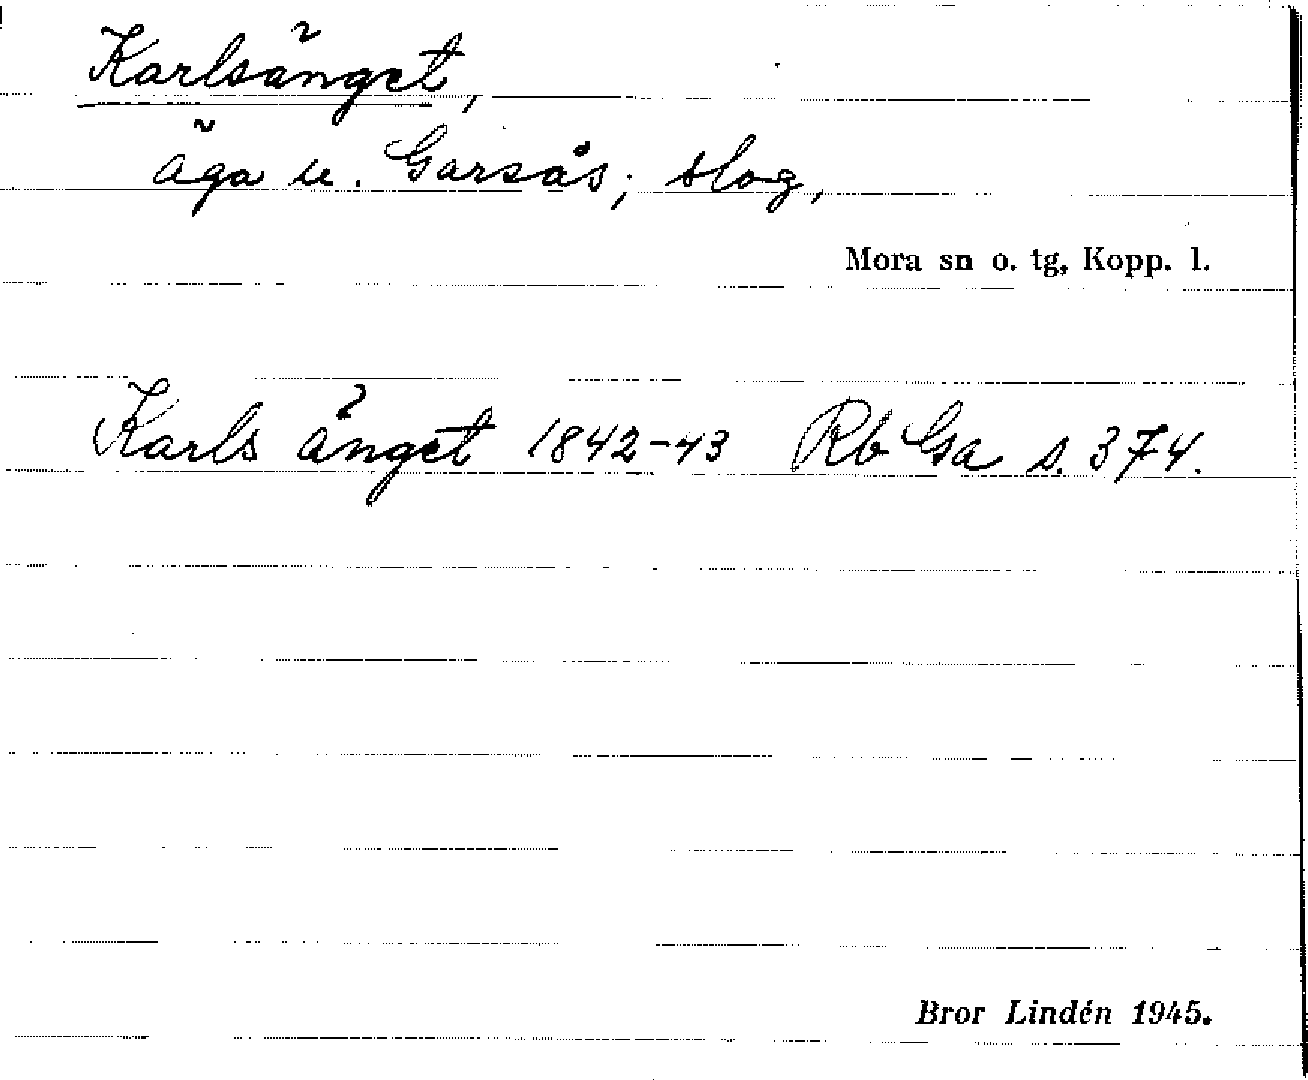 Karlsänget,
äga u. Garsås; slog,
Mora sn o. tg, Kopp. l.
Karls änget 1842-43 Rb Ga s. 374.
Bror Lindén 1945.